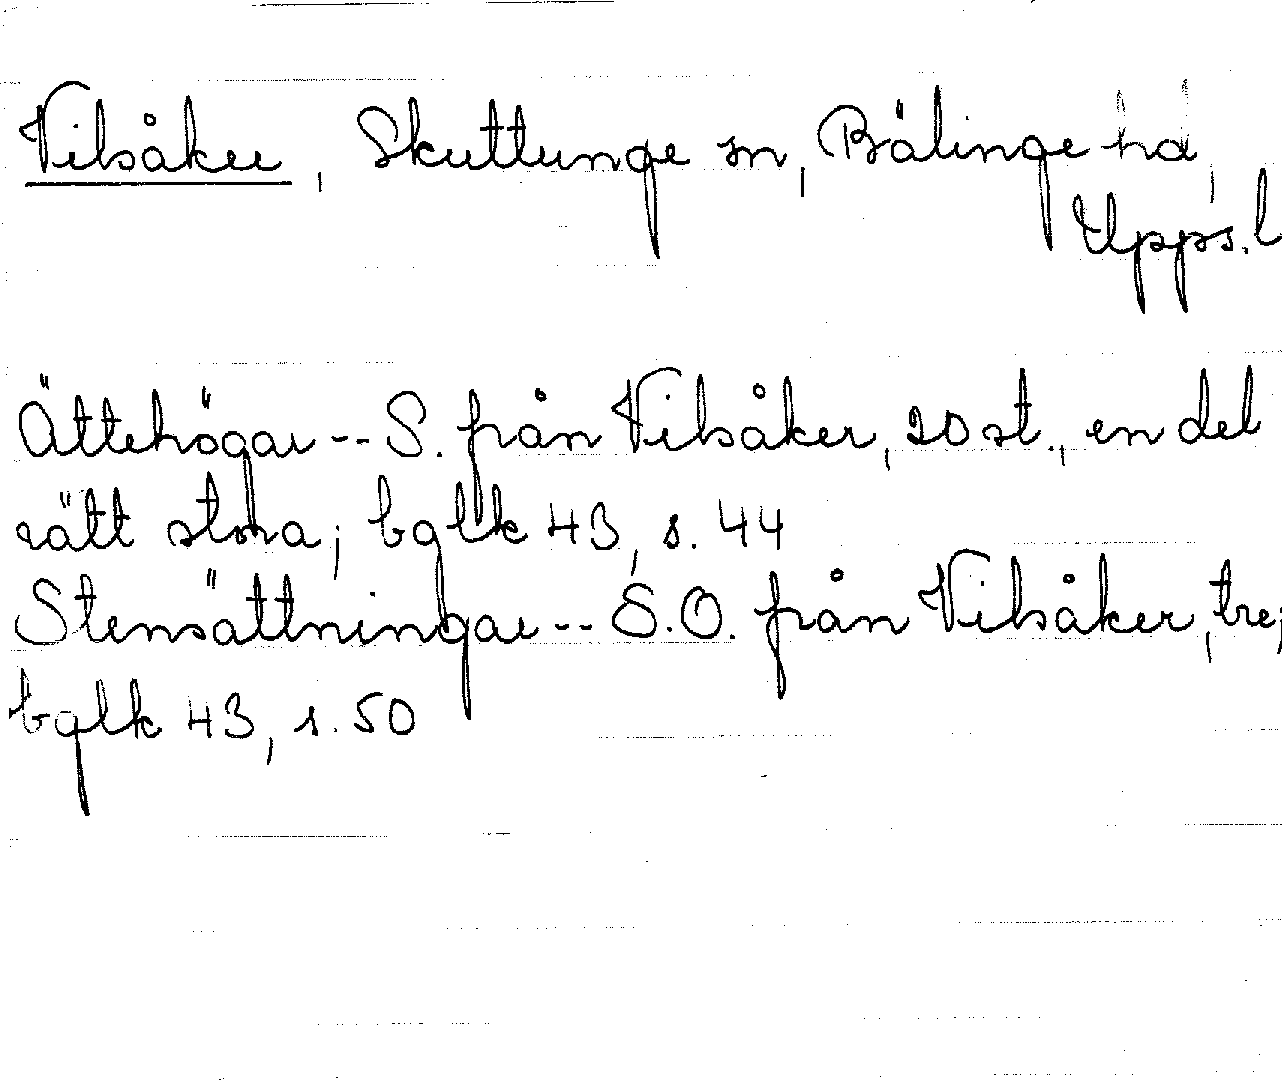 Vilsåker, Skuttunge sn, Bälinge hd,
Upps. l
Ättehögar -- S. från Vilsåker, 20 st., en del
rätt stora; bglk 43, s. 44
Stensättningar -- S.O. från Vilsåker, tre;
bglk 43, s. 50